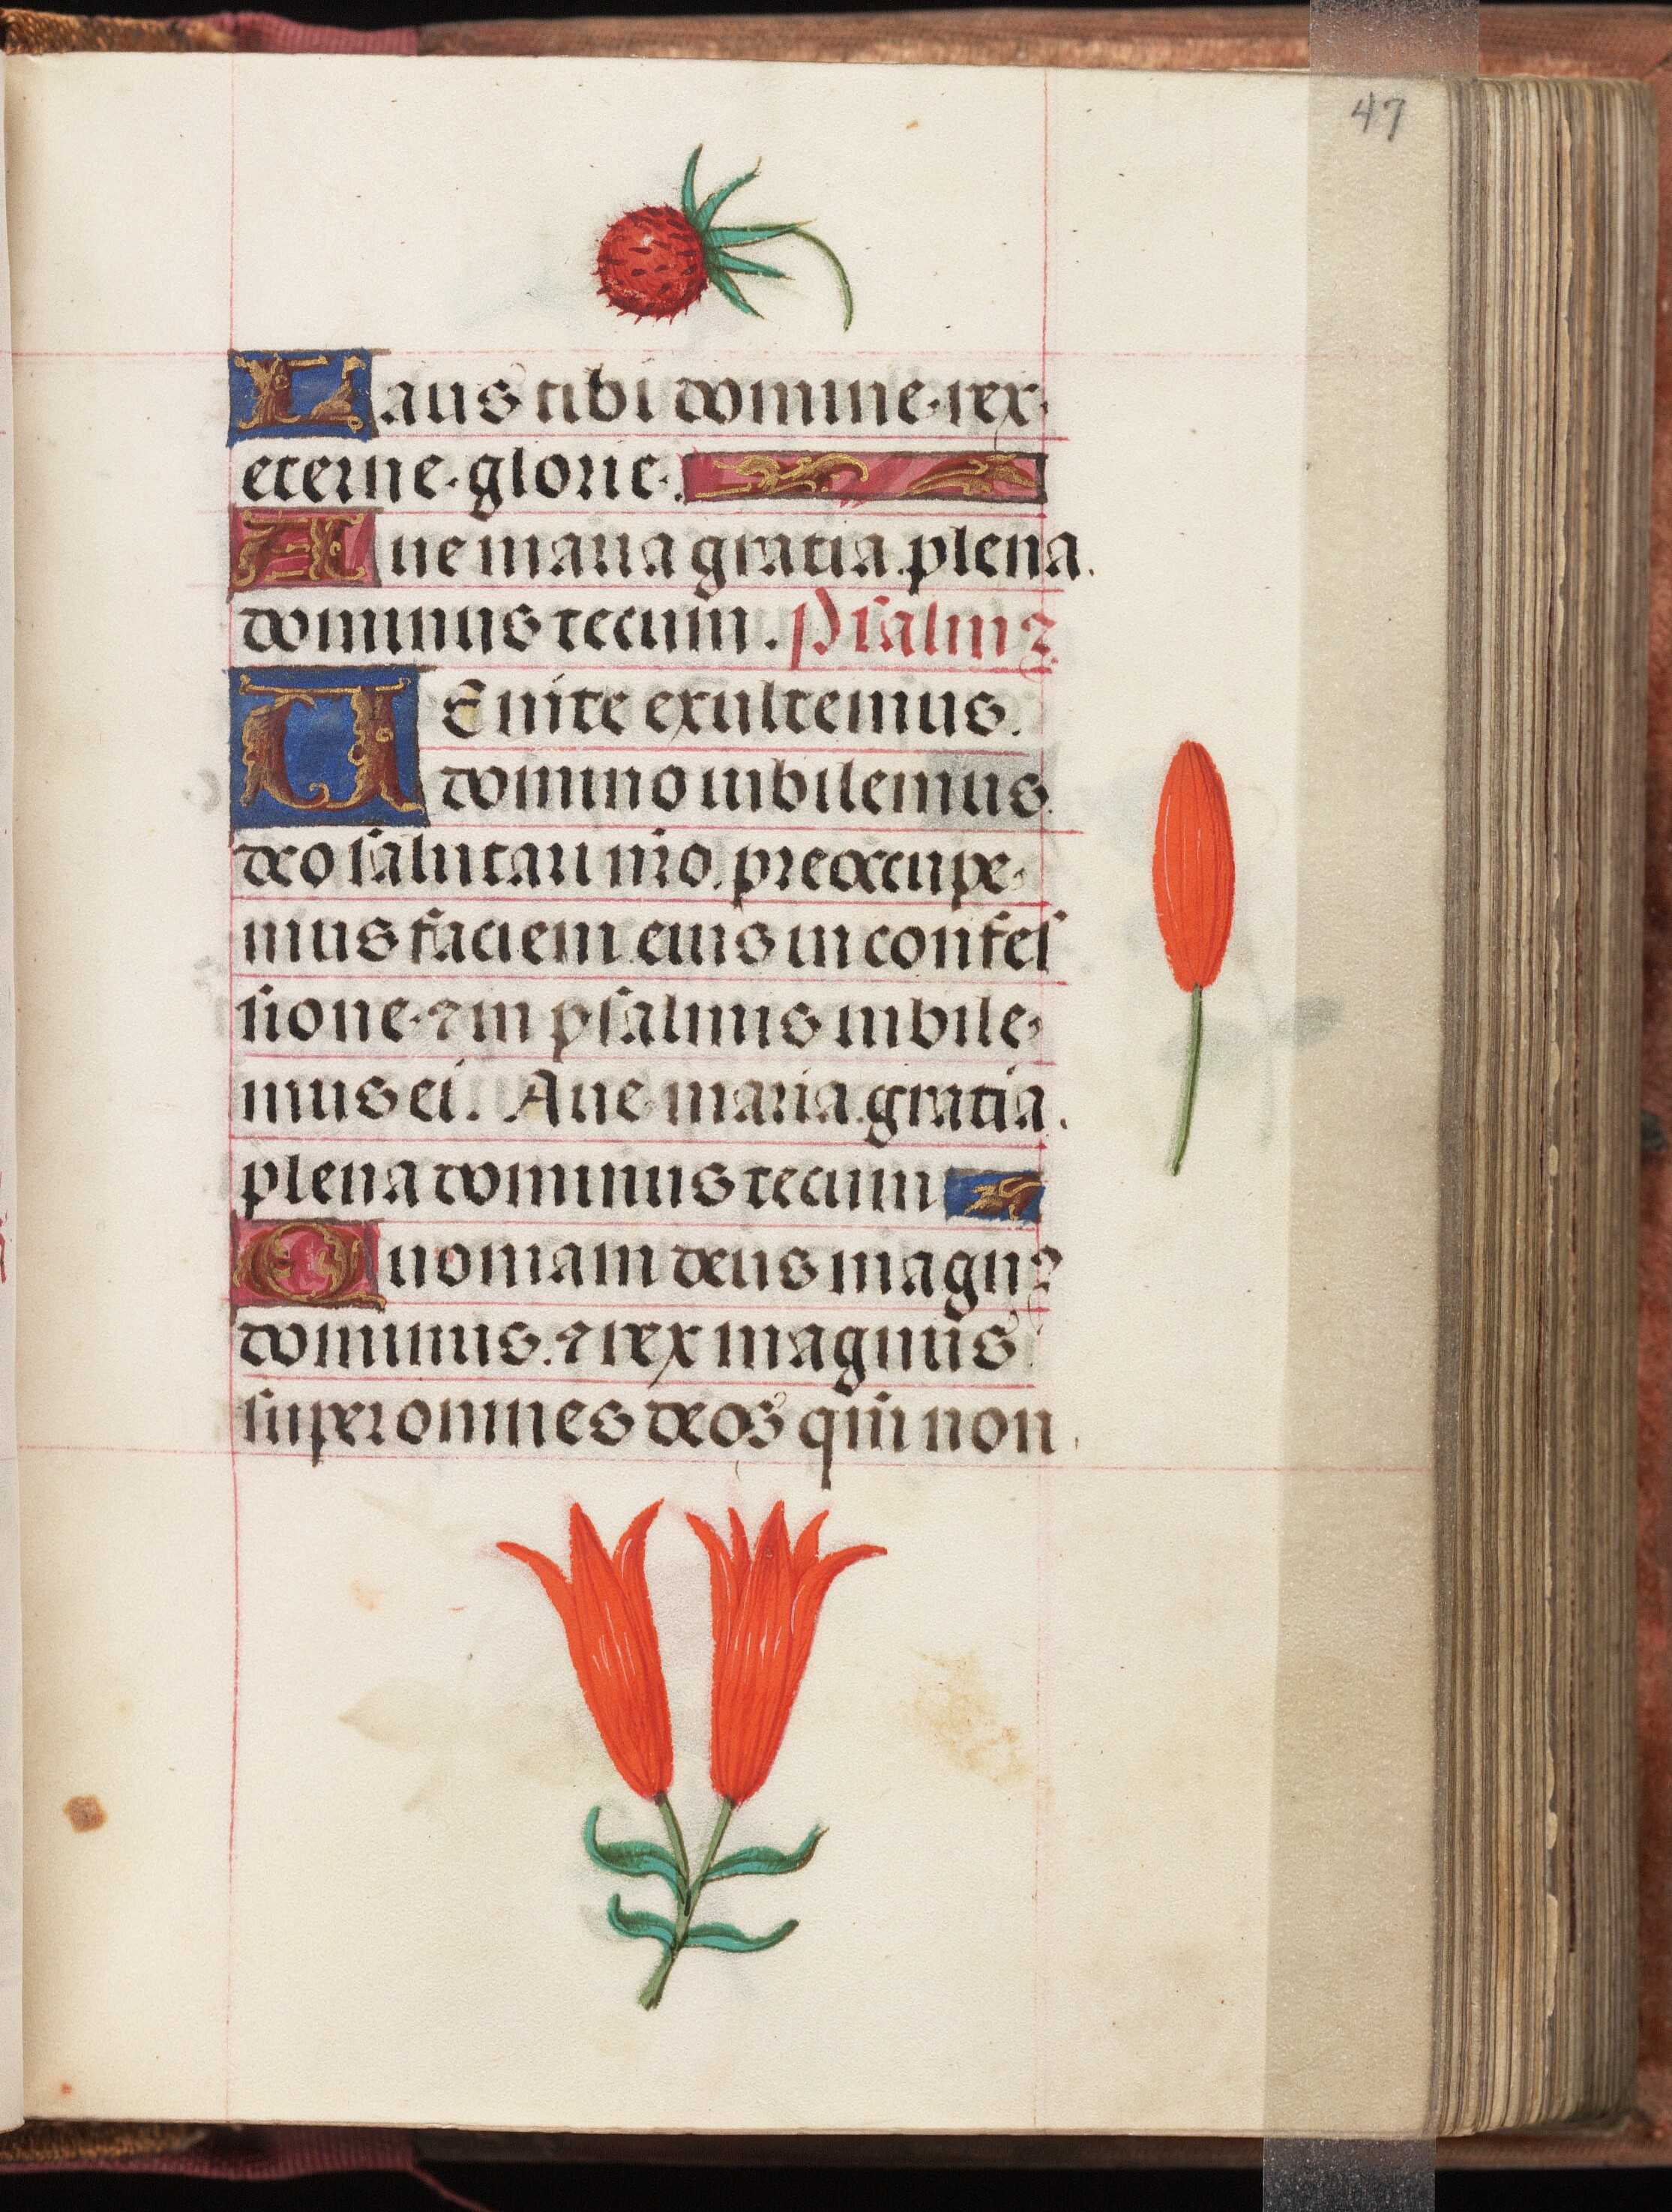 47
Laus tibi domine rex
eterne glorie.
Aue maria gratia plena.
dominus tecum. Psalmꝰ
UEnite exultemus.
domino iubilemus.
deo salutari nr̄o. preoccupe-
mus faciem eius in confes
sione ⁊ in psalmis iubile-
mus ei. Aue maria gratia.
plena dominus tecum
Quoniam deus magnꝰ
dominus. ⁊ rex magnus
super omnes deos qm̄ non